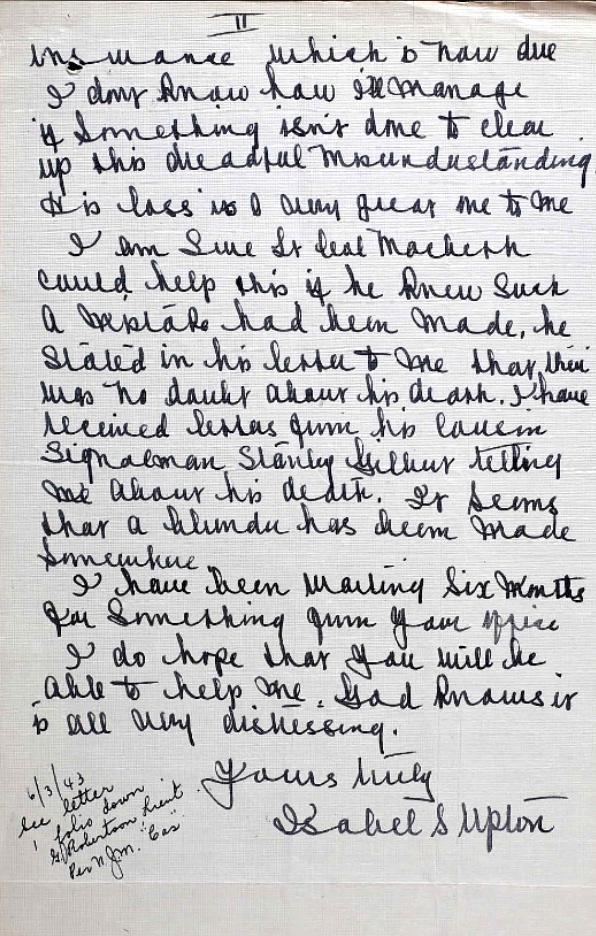 II
insurance which is now due
I dont know how Ill manage
if something isn't done to clear
up this dreadful misunderstanding.
His loss is a very great one to me
I am sure Lt Seal Macbeth
could help this if he knew such
a mistake had been made, he
stated in his letter to me that there
was no doubt about his death. I have
received letters from his cousin
Signalman Stanley Gilbert telling
me about his death. It seems
that a blunder has been made
somewhere.
I have been waiting six months
for something from your office
I do hope that you will be
able to help me. God knows it
is all very distressing.
Yours truly
Isabel S Upton
6/3/43
see letter
1 folio down
G Robertson Lieut
Per N.J.M. "Cas"